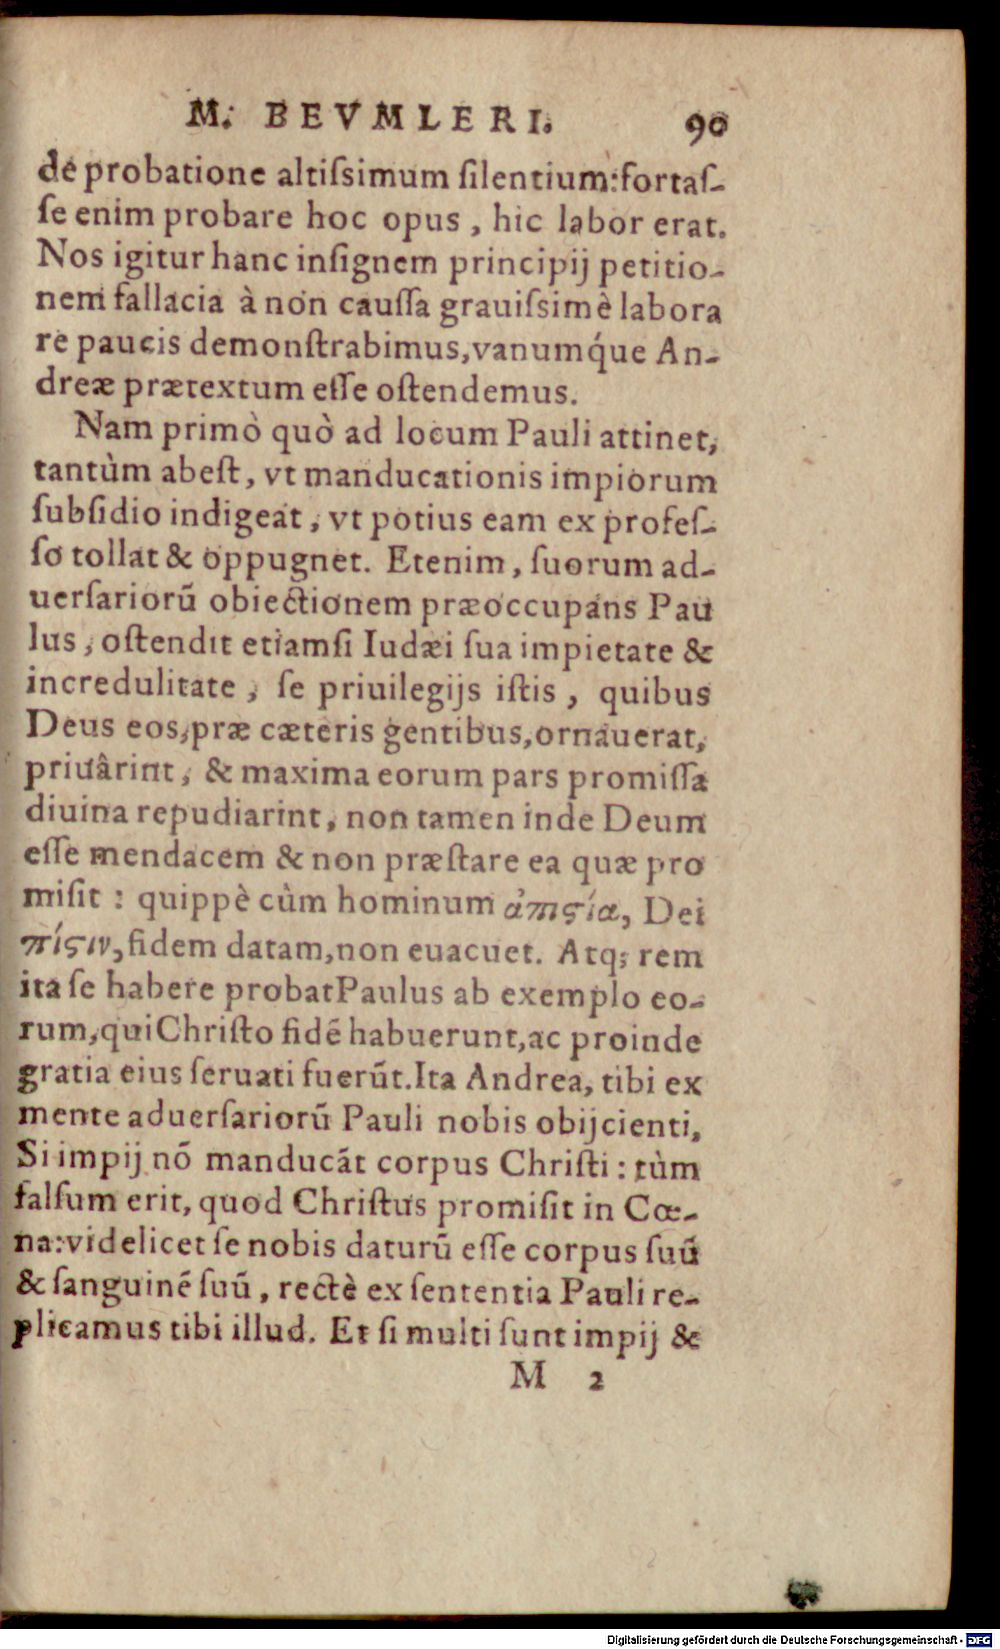 M. BEVMLERI. 90
de probatione altiſsimum ſilentium: fortaſ-
ſe enim probare hoc opus, hic labor erat.
Nos igitur hanc inſignem principij petitio-
nem fallacia à non cauſſa grauiſsimè labora
re paucis demonſtrabimus, vanumq́ue An-
dreæ prætextum eſſe oſtendemus.
Nam primò quò ad locum Pauli attinet,
tantùm abeſt, vt manducationis impiorum
ſubſidio indigeat, vt potius eam ex profeſ-
ſo tollat & oppugnet. Etenim, ſuorum ad-
uerſariorũ obiectionem præoccupans Pau
lus, oſtendit etiamſi Iudæi ſua impietate &
incredulitate, ſe priuilegijs iſtis, quibus
Deus eos, præ cæteris gentibus, ornauerat,
priuârint, & maxima eorum pars promiſſa
diuina repudiarint, non tamen inde Deum
eſſe mendacem & non præſtare ea quæ pro
miſit: quippè cùm hominum ἀπιςία, Dei
πίςιν, fidem datam, non euacuet. Atq; rem
ita ſe habere probat Paulus ab exemplo eo-
rum, qui Chriſto fidẽ habuerunt, ac proinde
gratia eius ſeruati fuerũt. Ita Andrea, tibi ex
mente aduerſariorũ Pauli nobis obijcienti,
Si impij nõ manducãt corpus Chriſti: tùm
falſum erit, quod Chriſtus promiſit in Cœ-
na: videlicet ſe nobis daturũ eſſe corpus ſuũ
& ſanguinẽ ſuũ, rectè ex ſententia Pauli re-
plicamus tibi illud. Et ſi multi ſunt impij &
M 2
Digitalisierung gefördert durch die Deutsche Forschungsgemeinschaft - DFG